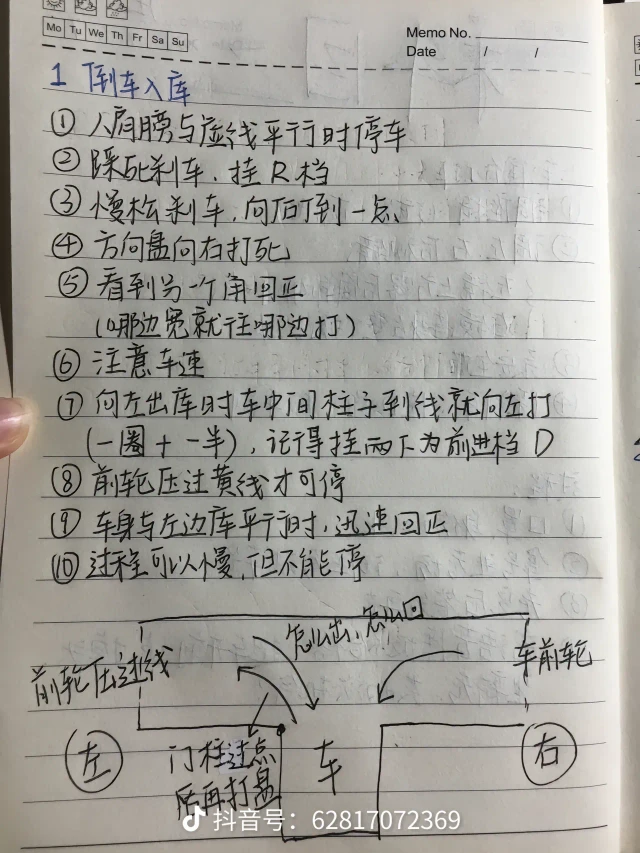 Mo Tu We Th Fr Sa Su
Memo No.
Date / /
1 倒车入库
① 人肩膀与虚线平行时停车
② 踩死刹车，挂R档
③ 慢松刹车，向后倒一点、
④ 方向盘向右打死
⑤ 看到另一个角回正
(哪边宽就往哪边打)
⑥ 注意车速
⑦ 向左出库时车中间柱子到线就向左打
(一圈+一半)，记得挂两下为前进档 D
⑧ 前轮压过黄线才可停
⑨ 车身与左边库平行时，迅速回正
⑩ 过程可以慢，但不能停
怎么出、怎么回
前轮压过线
车前轮
左
门柱过点
后再打盘
车
右
抖音号：62817072369